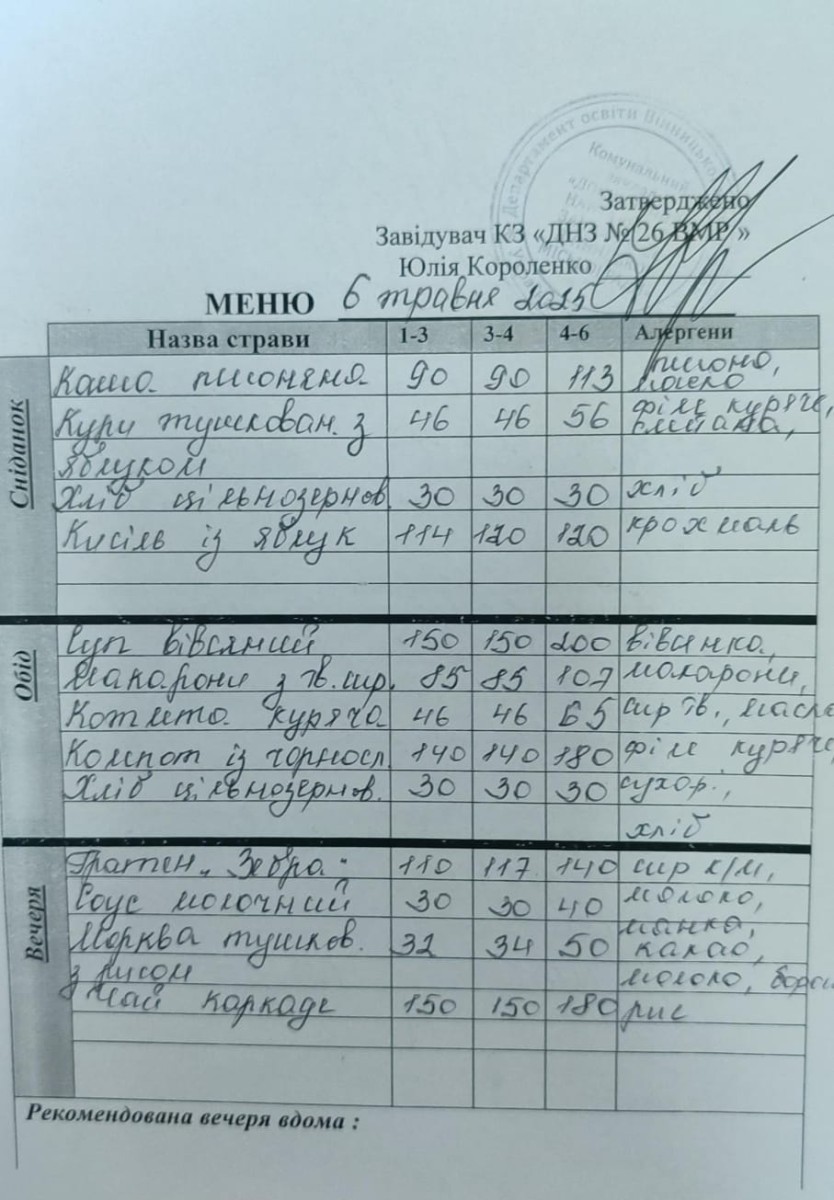 Департамент освіти Вінницько
Комунальний
Затверджено
Завідувач КЗ «ДНЗ № 26 ВМР »
Юлія Короленко
МЕНЮ 6 травня 2025
Назва страви 1-3 3-4 4-6 Алергени
Сніданок
Каша пшоняна 90 90 113 пшоно, масло
Кури тушкован. з 46 46 56 філе куряче, сметана,
яблуком
Хліб цільнозернов. 30 30 30 хліб
Кисіль із яблук 114 120 120 крохмаль
Обід
Суп вівсяний 150 150 200 вівсянка,
Макарони з тв. сир. 85 85 107 макарони,
Котлета куряча 46 46 65 сир тв., масло
Компот із чорносл. 140 140 180 філе куряче,
Хліб цільнозернов. 30 30 30 сухор.,
хліб
Вечеря
Гратен „Зебра" 110 117 140 сир к/м,
Соус молочний 30 30 40 молоко,
манка,
Морква тушков. 32 34 50 какао,
з рисом молоко, борош
Чай каркаде 150 150 180 рис
Рекомендована вечеря вдома :